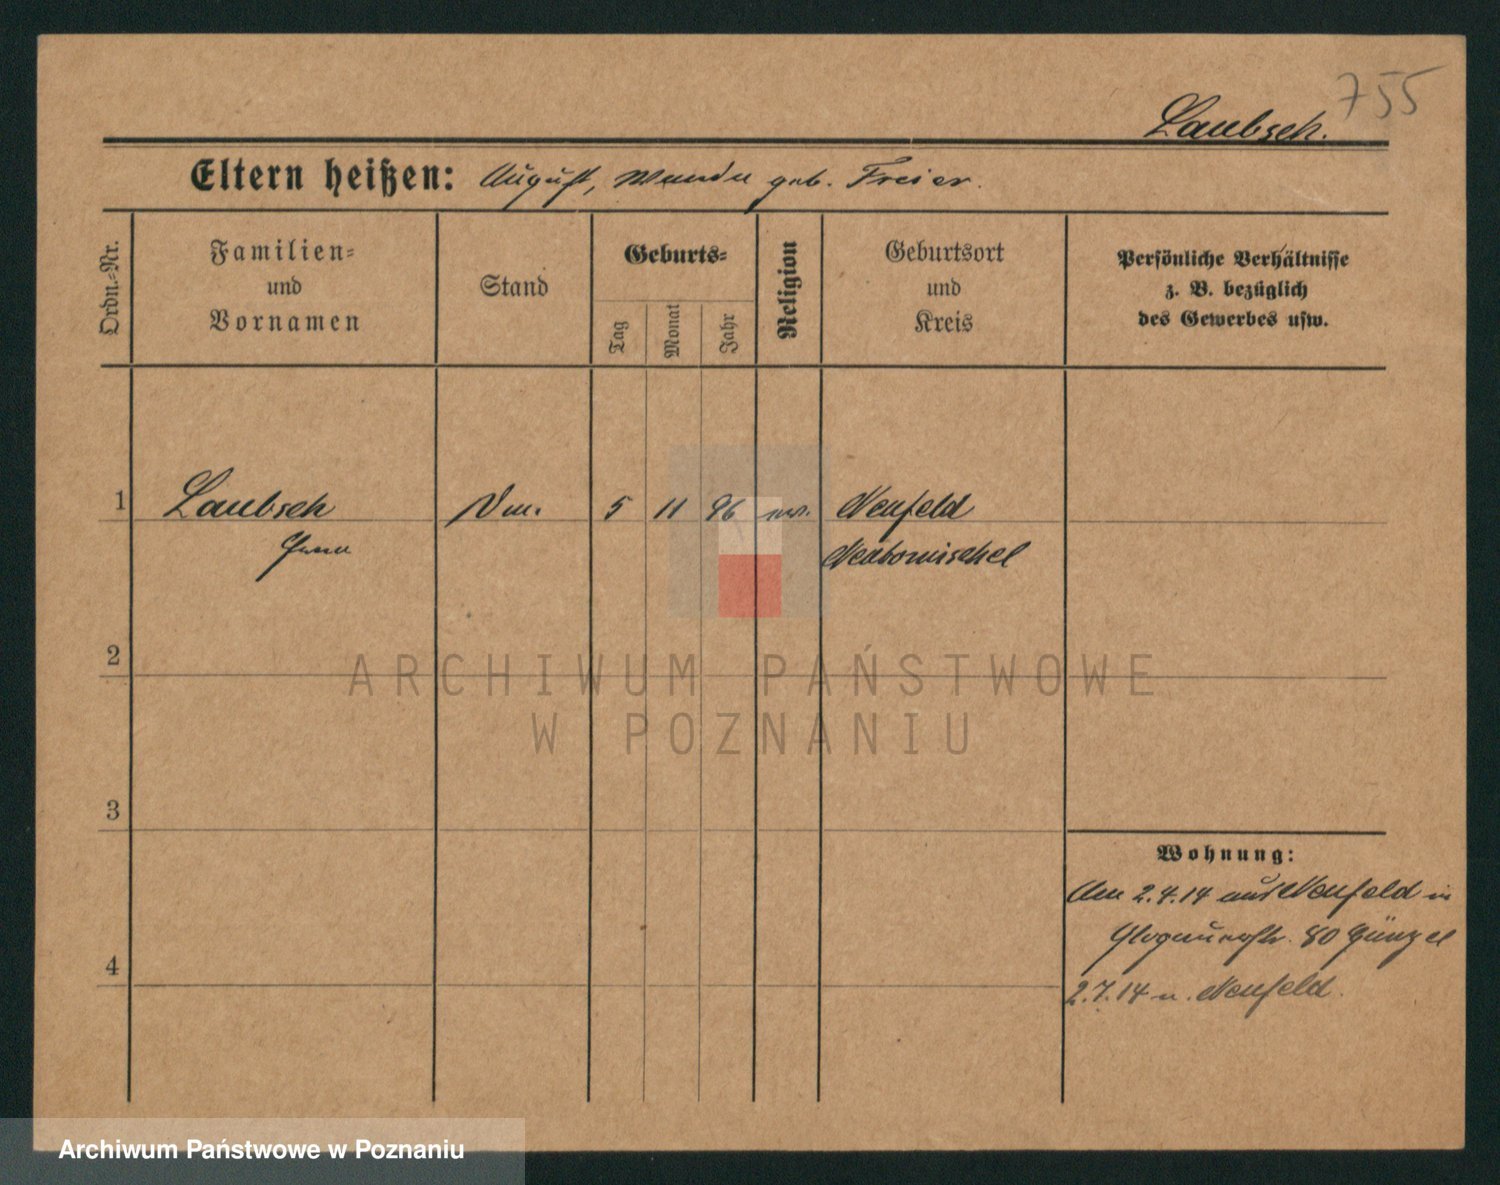 755
Laubsch.
Eltern heißen: August, Wanda geb. Freier.
Ordn.=Nr.
Familien=
und
Vornamen
Stand
Geburts=
Tag
Monat
Jahr
Religion
Geburtsort
und
Kreis
Persönliche Verhältnisse
z. B. bezüglich
des Gewerbes usw.
1 Laubsch 5 11 96 Neufeld
Neutomischel
2
3
4
Wohnung:
Am 2.4.14 aus Neufeld in
Glogauerstr. 80 Günzel
2.7.14 n. Neufeld.
ARCHIWUM PAŃSTWOWE
W POZNANIU
Archiwum Państwowe w Poznaniu